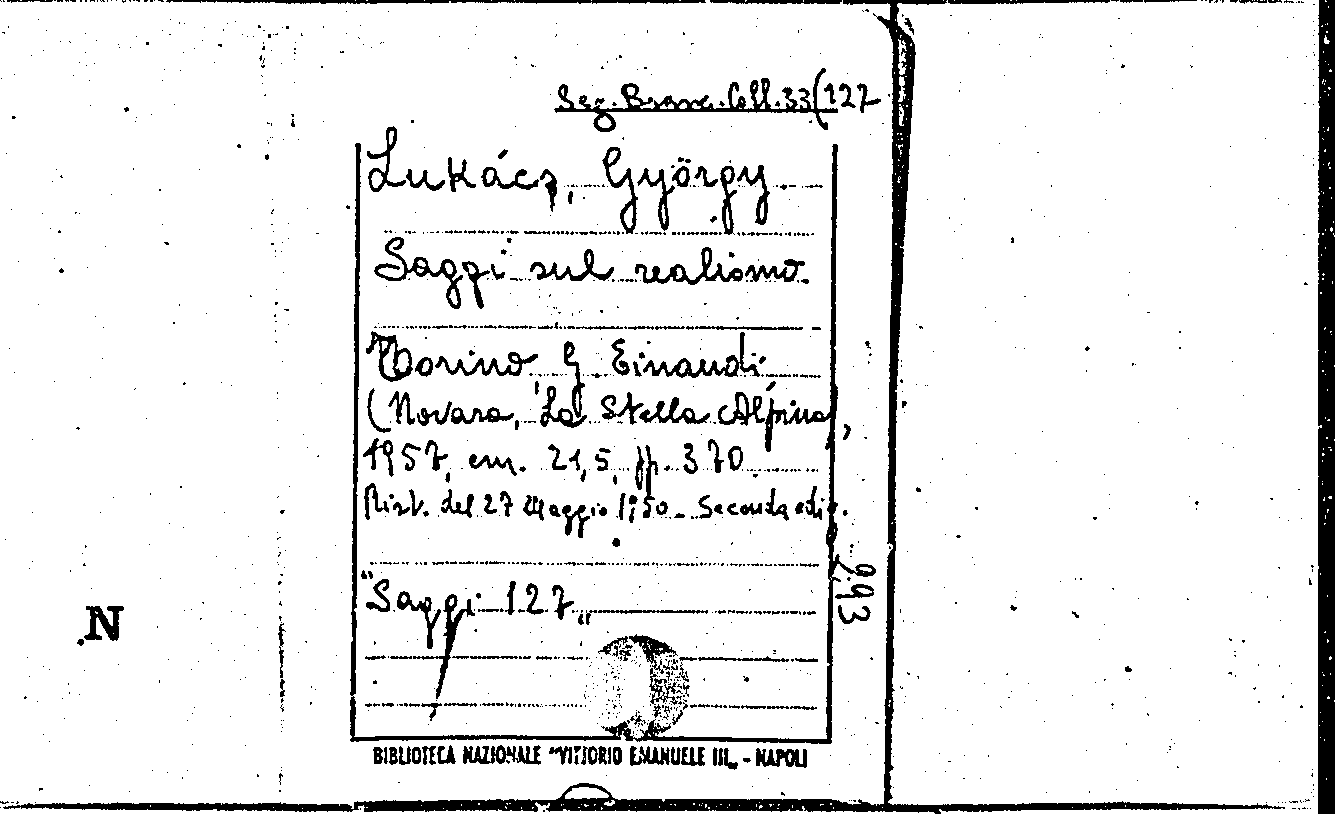 Sez. Branc. Coll. 33(127
Lukács, György.
Saggi sul realismo.
Torino, G. Einaudi
(Novara, La Stella Alpina),
1957, cm. 21,5, pp. 370.
Rist. del 27 Maggio 1950 - Seconda ediz.
"Saggi 127"
293
N
BIBLIOTECA NAZIONALE "VITTORIO EMANUELE III„ - NAPOLI